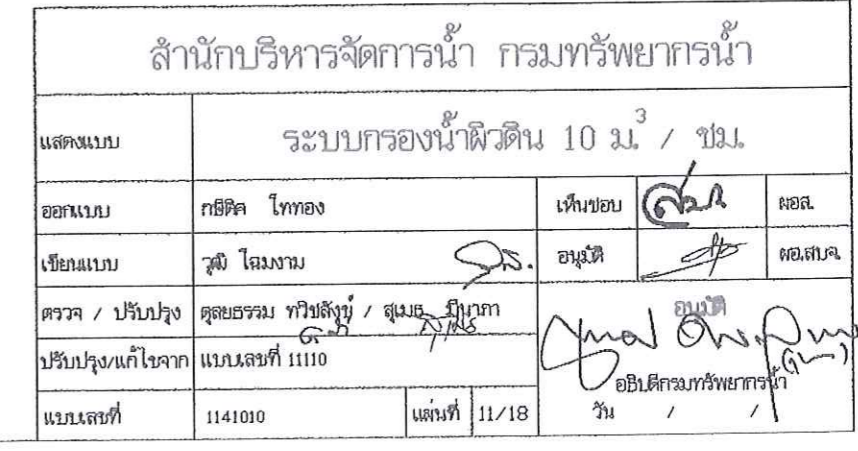 สำนักบริหารจัดการน้ำ กรมทรัพยากรน้ำ
แสดงแบบ ระบบกรองน้ำผิวดิน 10 ม.³ / ชม.
ออกแบบ ไททอง เห็นชอบ ผอส.
เขียนแบบ วุฒิ โฉมงาม อนุมัติ ผอ.สบจ.
ตรวจ / ปรับปรุง ดุลยธรรม ทวิชสังข์ / สุเมธ มีนาภา อนุมัติ
ปรับปรุง/แก้ไขจาก แบบเลขที่ 11110
อธิบดีกรมทรัพยากรน้ำ
แบบเลขที่ 1141010 แผ่นที่ 11/18 วัน / /